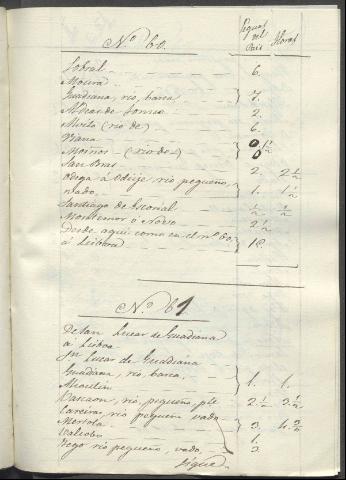 Leguas del Pais Horas
N.o 60.
Sobral 6.
Moura
Guadiana, rio, barca 7.
Aldea de 2.
Alvito (rio de) 6.
Viana 0 1½
Moiños (rio de) 0
San Bras 2. 2½
á Odieje rio pequeño,
vado. 1. 1½
Santiago de Escorial ½ ½
Montemor ó Novo 2½
Desde aqui como en el n.o 60
á Lisboa 18.
N.o 61
De San Lucar de Guadiana
á Lisboa
Sn Lucar de Guadiana
Guadiana, rio, barca. 1. 1.
Alcoutin
Vascaon, rio, pequeño, pte 2½ 3½
Careiras, rio pequeño vado
Mertola. 3. 4½
1.
rio pequeño, vado. 3.
Sigue